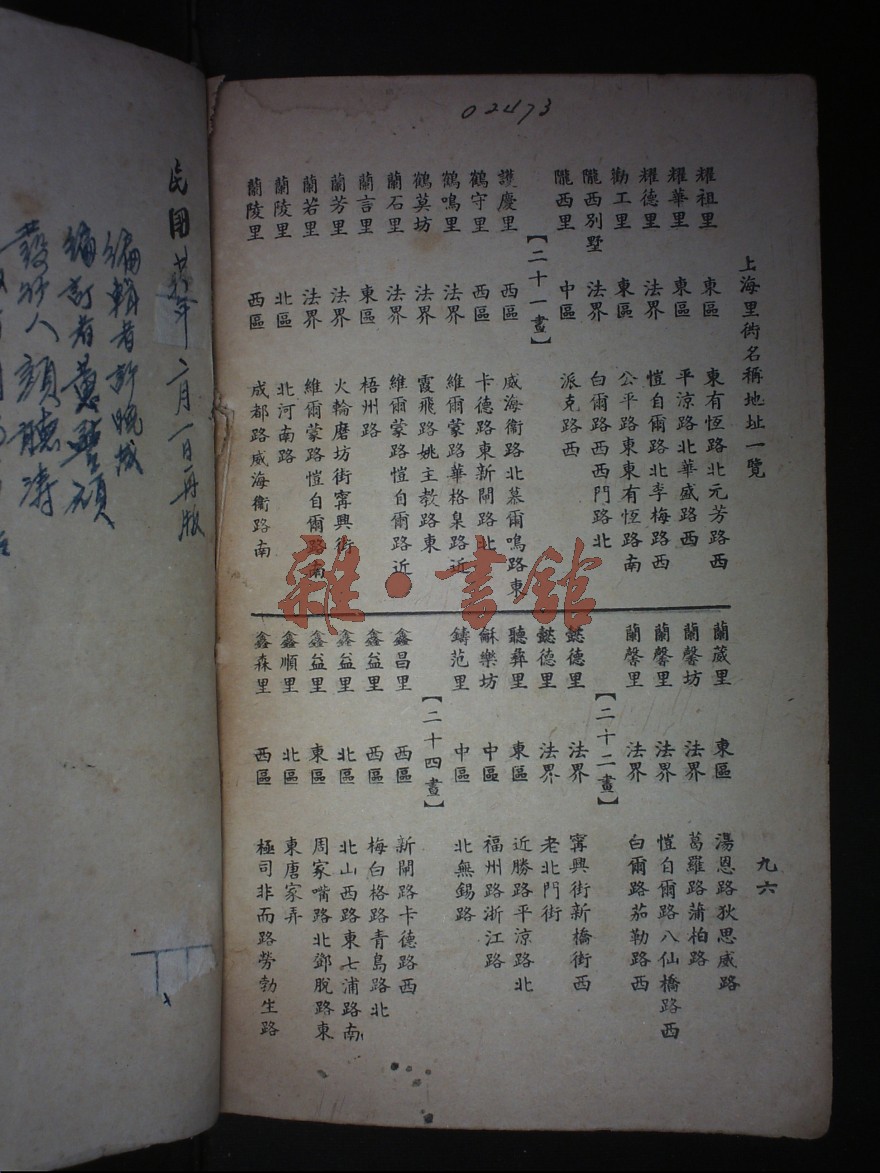 02473
上海里衖名稱地址一覽
耀祖里 東區 東有恆路北元芳路西
耀華里 東區 平涼路北華盛路西
耀德里 法界 愷自爾路北李梅路西
勸工里 東區 公平路東東有恆路南
隴西別墅 法界 白爾路西西門路北
隴西里 中區 派克路西
【二十一畫】
護慶里 西區 威海衛路北慕爾鳴路東
鶴守里 西區 卡德路東新閘路北
鶴鳴里 法界 維爾蒙路華格臬路近
鶴莫坊 法界 霞飛路姚主教路東
蘭石里 法界 維爾蒙路愷自爾路近
蘭言里 東區 梧州路
蘭芳里 法界 火輪磨坊街寗興街
蘭若里 法界 維爾蒙路愷自爾路南
蘭陵里 北區 北河南路
蘭陵里 西區 成都路威海衞路南
蘭葳里 東區 湯恩路狄思威路
蘭馨坊 法界 葛羅路蒲柏路
蘭馨里 法界 愷自爾路八仙橋路西
蘭馨里 法界 白爾路茄勒路西
【二十二畫】
懿德里 法界 寗興街新橋街西
懿德里 法界 老北門街
聽彝里 東區 近勝路平涼路北
龢樂坊 中區 福州路浙江路
鑄范里 中區 北無錫路
【二十四畫】
鑫昌里 西區 新閘路卡德路西
鑫益里 西區 梅白格路青島路北
鑫益里 北區 北山西路東七浦路南
鑫益里 東區 周家嘴路北鄧脫路東
鑫順里 北區 東唐家弄
鑫森里 西區 極司非而路勞勃生路
九六
雜·書館
民國 年 二月一日再版
編輯者許晚成
編訂者黃 頑
發行人顏聽濤